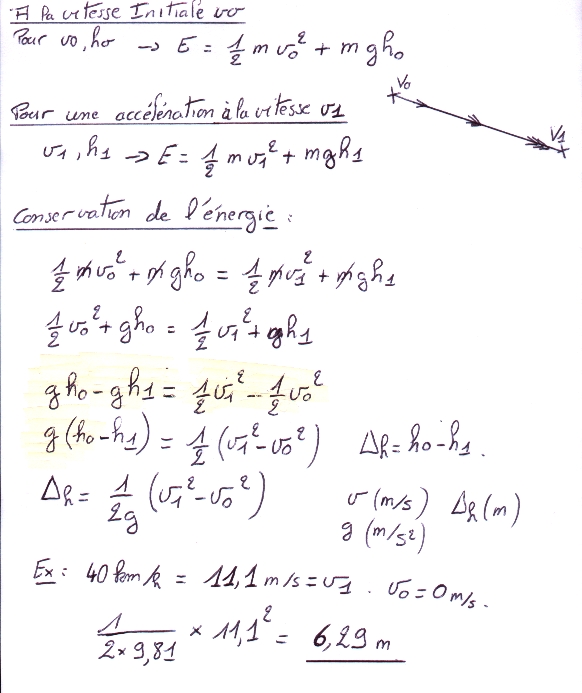 A la vitesse Initiale v0
Pour v0, h0 → E = 1/2 m v0² + m g h0
V0
Pour une accélération à la vitesse v1
V1
v1, h1 → E = 1/2 m v1² + m g h1
Conservation de l'énergie :
1/2 m v0² + m g h0 = 1/2 m v1² + m g h1
1/2 v0² + g h0 = 1/2 v1² + g h1
g h0 - g h1 = 1/2 v1² - 1/2 v0²
g (h0 - h1) = 1/2 (v1² - v0²) Δh = h0 - h1.
Δh = 1/2g (v1² - v0²) v (m/s) Δh (m)
g (m/s²)
Ex : 40 km/h = 11,1 m/s = v1 . v0 = 0 m/s.
1/(2 × 9,81) × 11,1² = 6,29 m